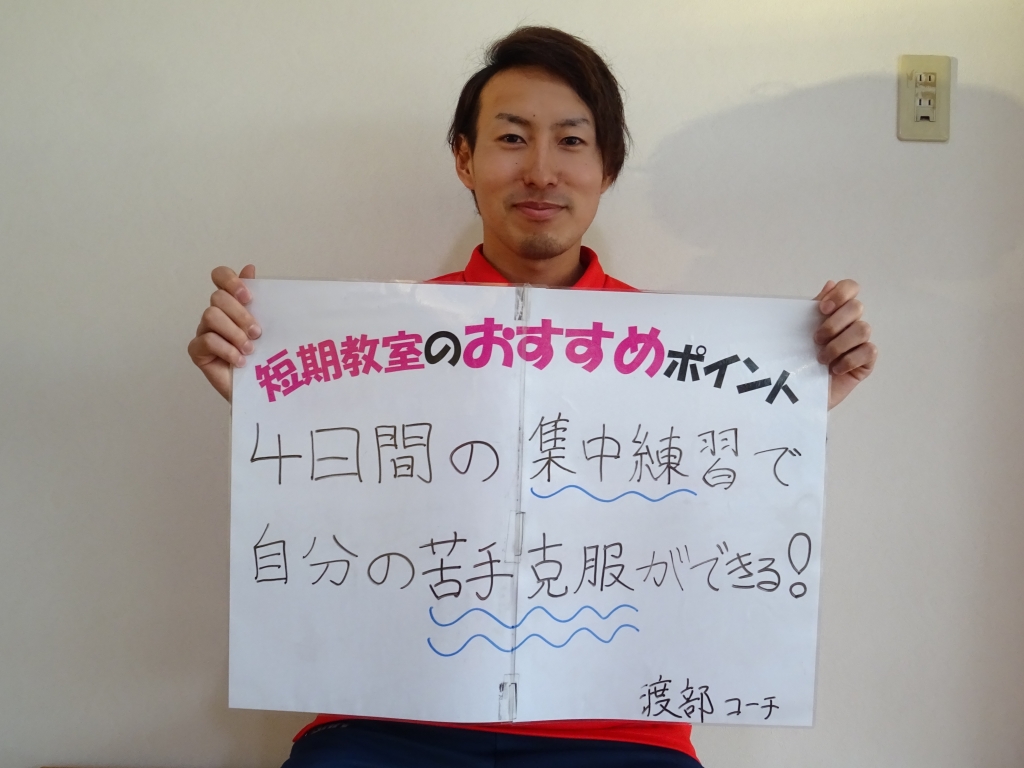 短期教室のおすすめポイント
4日間の集中練習で
自分の苦手克服ができる!
渡部コーチ